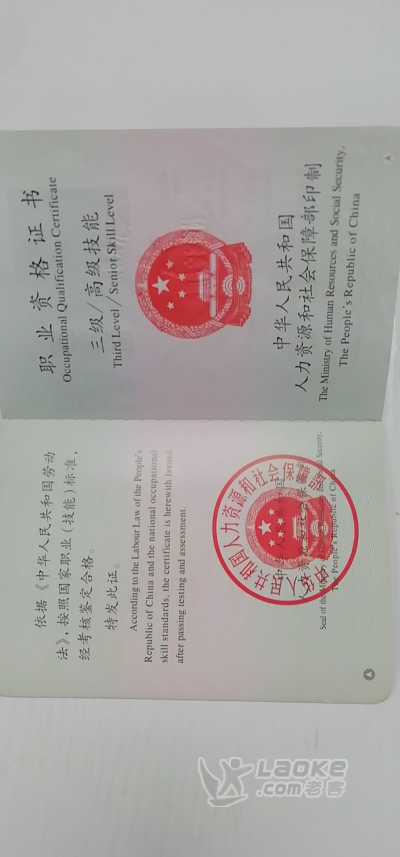 职业资格证书
Occupational Qualification Certificate
三级/高级技能
Third Level/Senior Skill Level
中华人民共和国
人力资源和社会保障部印制
The Ministry of Human Resources and Social Security,
The People's Republic of China
依据《中华人民共和国劳动
法》,按照国家职业(技能)标准,
经考核鉴定合格。
特发此证。
According to the Labour Law of the People's
Republic of China and the national occupational
skill standards, the certificate is herewith issued
after passing testing and assessment.
Seal of the
Security,
The People's Republic of China
Laoke
.com老客